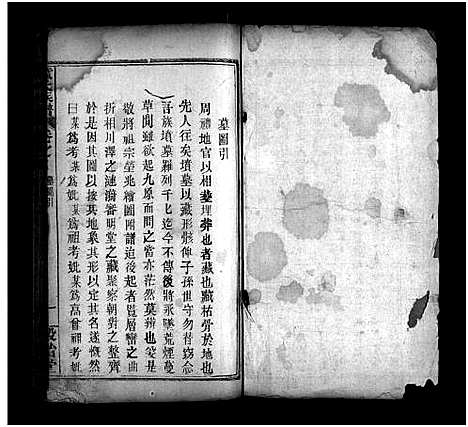 墓圖引
周禮地官以相葬埋葬也者藏也藏枯骨於地也
先人往矣墳墓以藏形骸俾子孫世守勿替竊念
吾族墳墓難列千七迄今不傳後將永墜荒煙蔓
草間雖欲起九原而問之當亦茫然莫辨也爰是
敬將祖宗塋兆繪圖附譜迨後起者覽層巒之曲
折相川澤之漣漪審明堂之藏聚察朝對之整齊
於是因其圖以按其地象其形以定其名遂慨然
曰某為考某為妣某為祖考妣某為高曾祖考
墓圖引
一